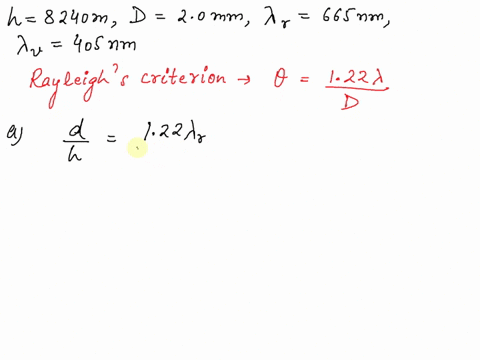 h = 8240m, D = 2.0mm, λr = 665nm,
λv = 405nm
Rayleigh's criterion → θ = 1.22λ / D
a) d / h = 1.22λr